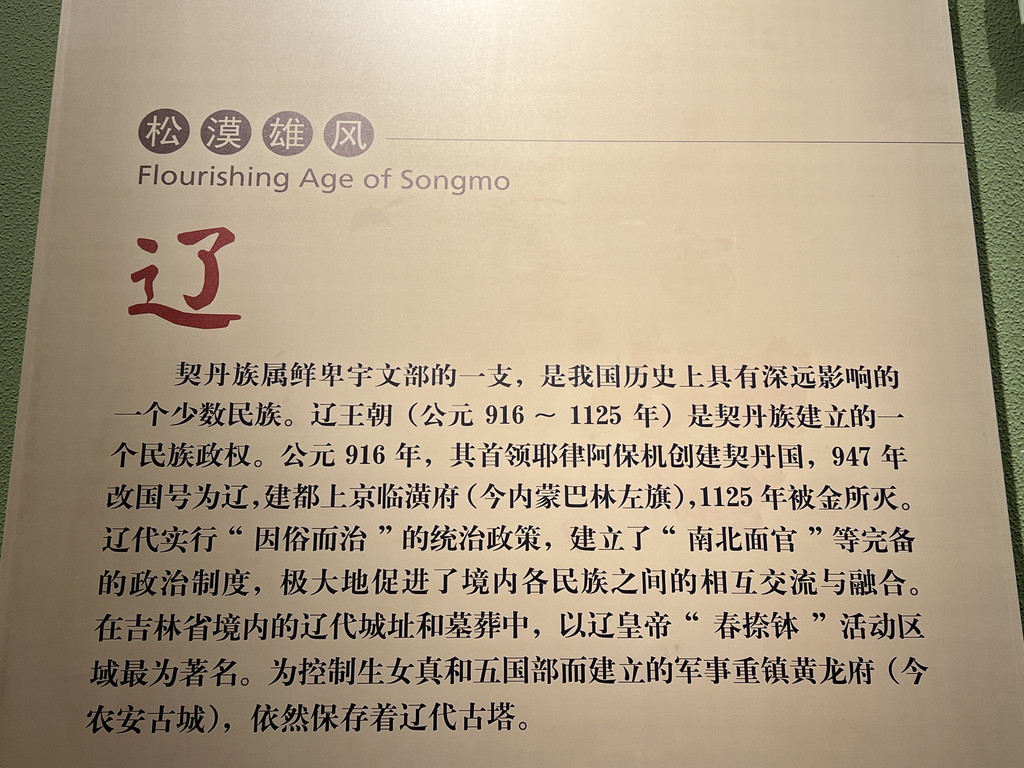 松漠雄风
Flourishing Age of Songmo
辽
契丹族属鲜卑宇文部的一支，是我国历史上具有深远影响的
一个少数民族。辽王朝（公元 916 ～ 1125 年）是契丹族建立的一
个民族政权。公元 916 年，其首领耶律阿保机创建契丹国，947 年
改国号为辽，建都上京临潢府（今内蒙巴林左旗），1125 年被金所灭。
辽代实行“ 因俗而治 ”的统治政策，建立了“ 南北面官 ”等完备
的政治制度，极大地促进了境内各民族之间的相互交流与融合。
在吉林省境内的辽代城址和墓葬中，以辽皇帝“ 春捺钵 ”活动区
域最为著名。为控制生女真和五国部而建立的军事重镇黄龙府（今
农安古城），依然保存着辽代古塔。